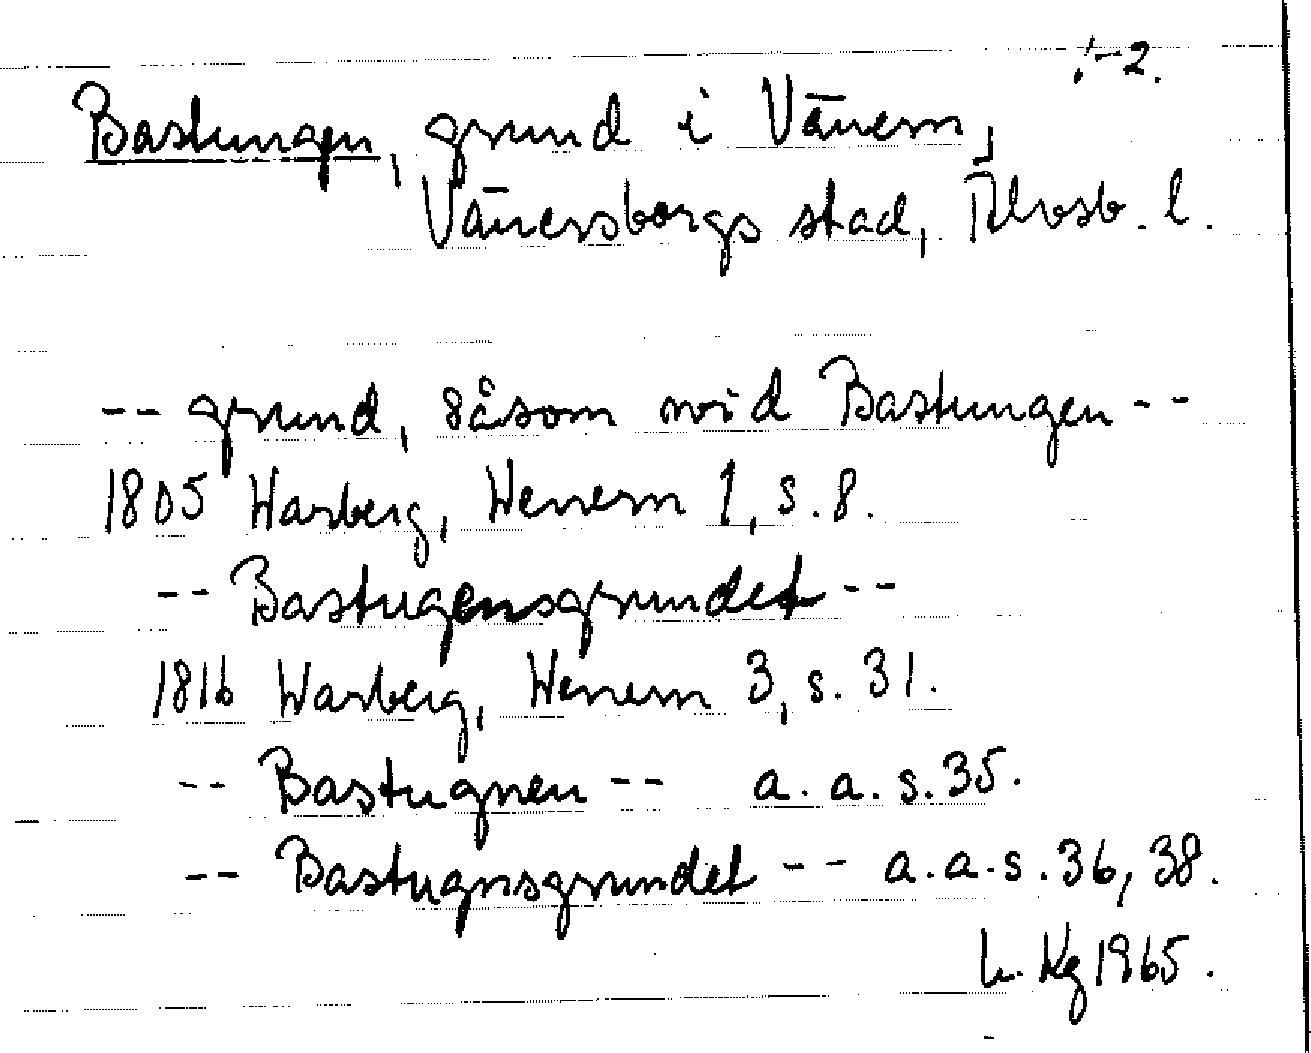 :-2.
Bastungen, grund i Vänern,
Vänersborgs stad, Älvsb. l.
-- grund, såsom wid Bastungen --
1805 Warberg, Wenern 1, s. 8.
-- Bastugensgrundet --
1816 Warberg, Wenern 3, s. 31.
-- Bastugnen -- a. a. s. 35.
-- Bastugnsgrundet -- a. a. s. 36, 38.
Kg 1965.